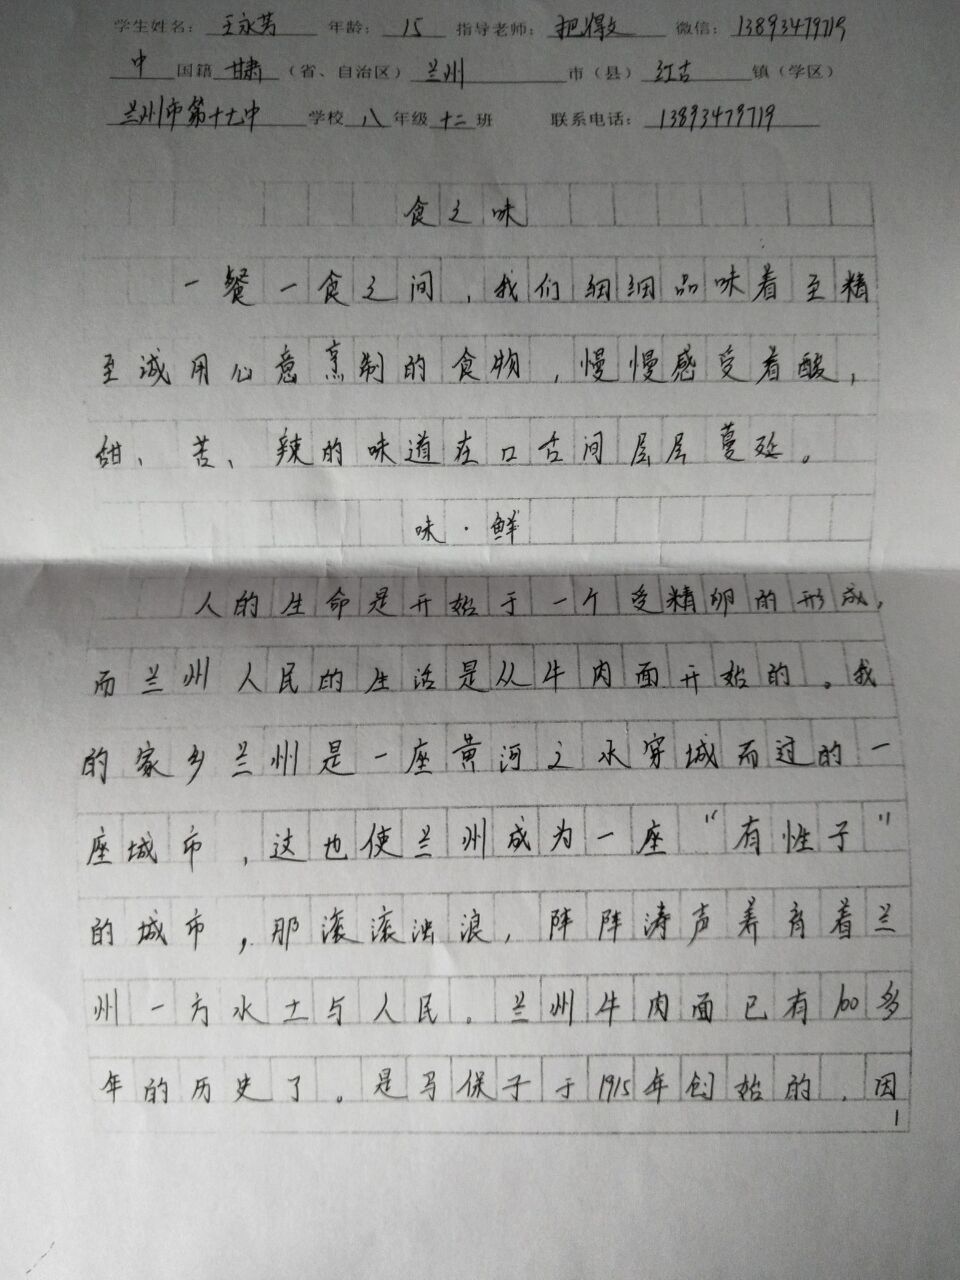 学生姓名：王永芳 年龄：15 指导老师：把得文 微信：13893479719
中国籍 甘肃（省、自治区）兰州 市（县）红古 镇（学区）
兰州市第十七中 学校 八年级 十二 班 联系电话：13893479719
食之味
一餐一食之间，我们细细品味着至精
至诚用心意烹制的食物，慢慢感受着酸，
甜、苦、辣的味道在口舌间层层蔓延。
味·鲜
人的生命是开始于一个受精卵的形成，
而兰州人民的生活是从牛肉面开始的。我
的家乡兰州是一座黄河之水穿城而过的一
座城市，这也使兰州成为一座“有性子”
的城市，那滚滚浊浪，阵阵涛声养育着兰
州一方水土与人民。兰州牛肉面已有100多
年的历史了。是马保子于1915年创始的，因
1